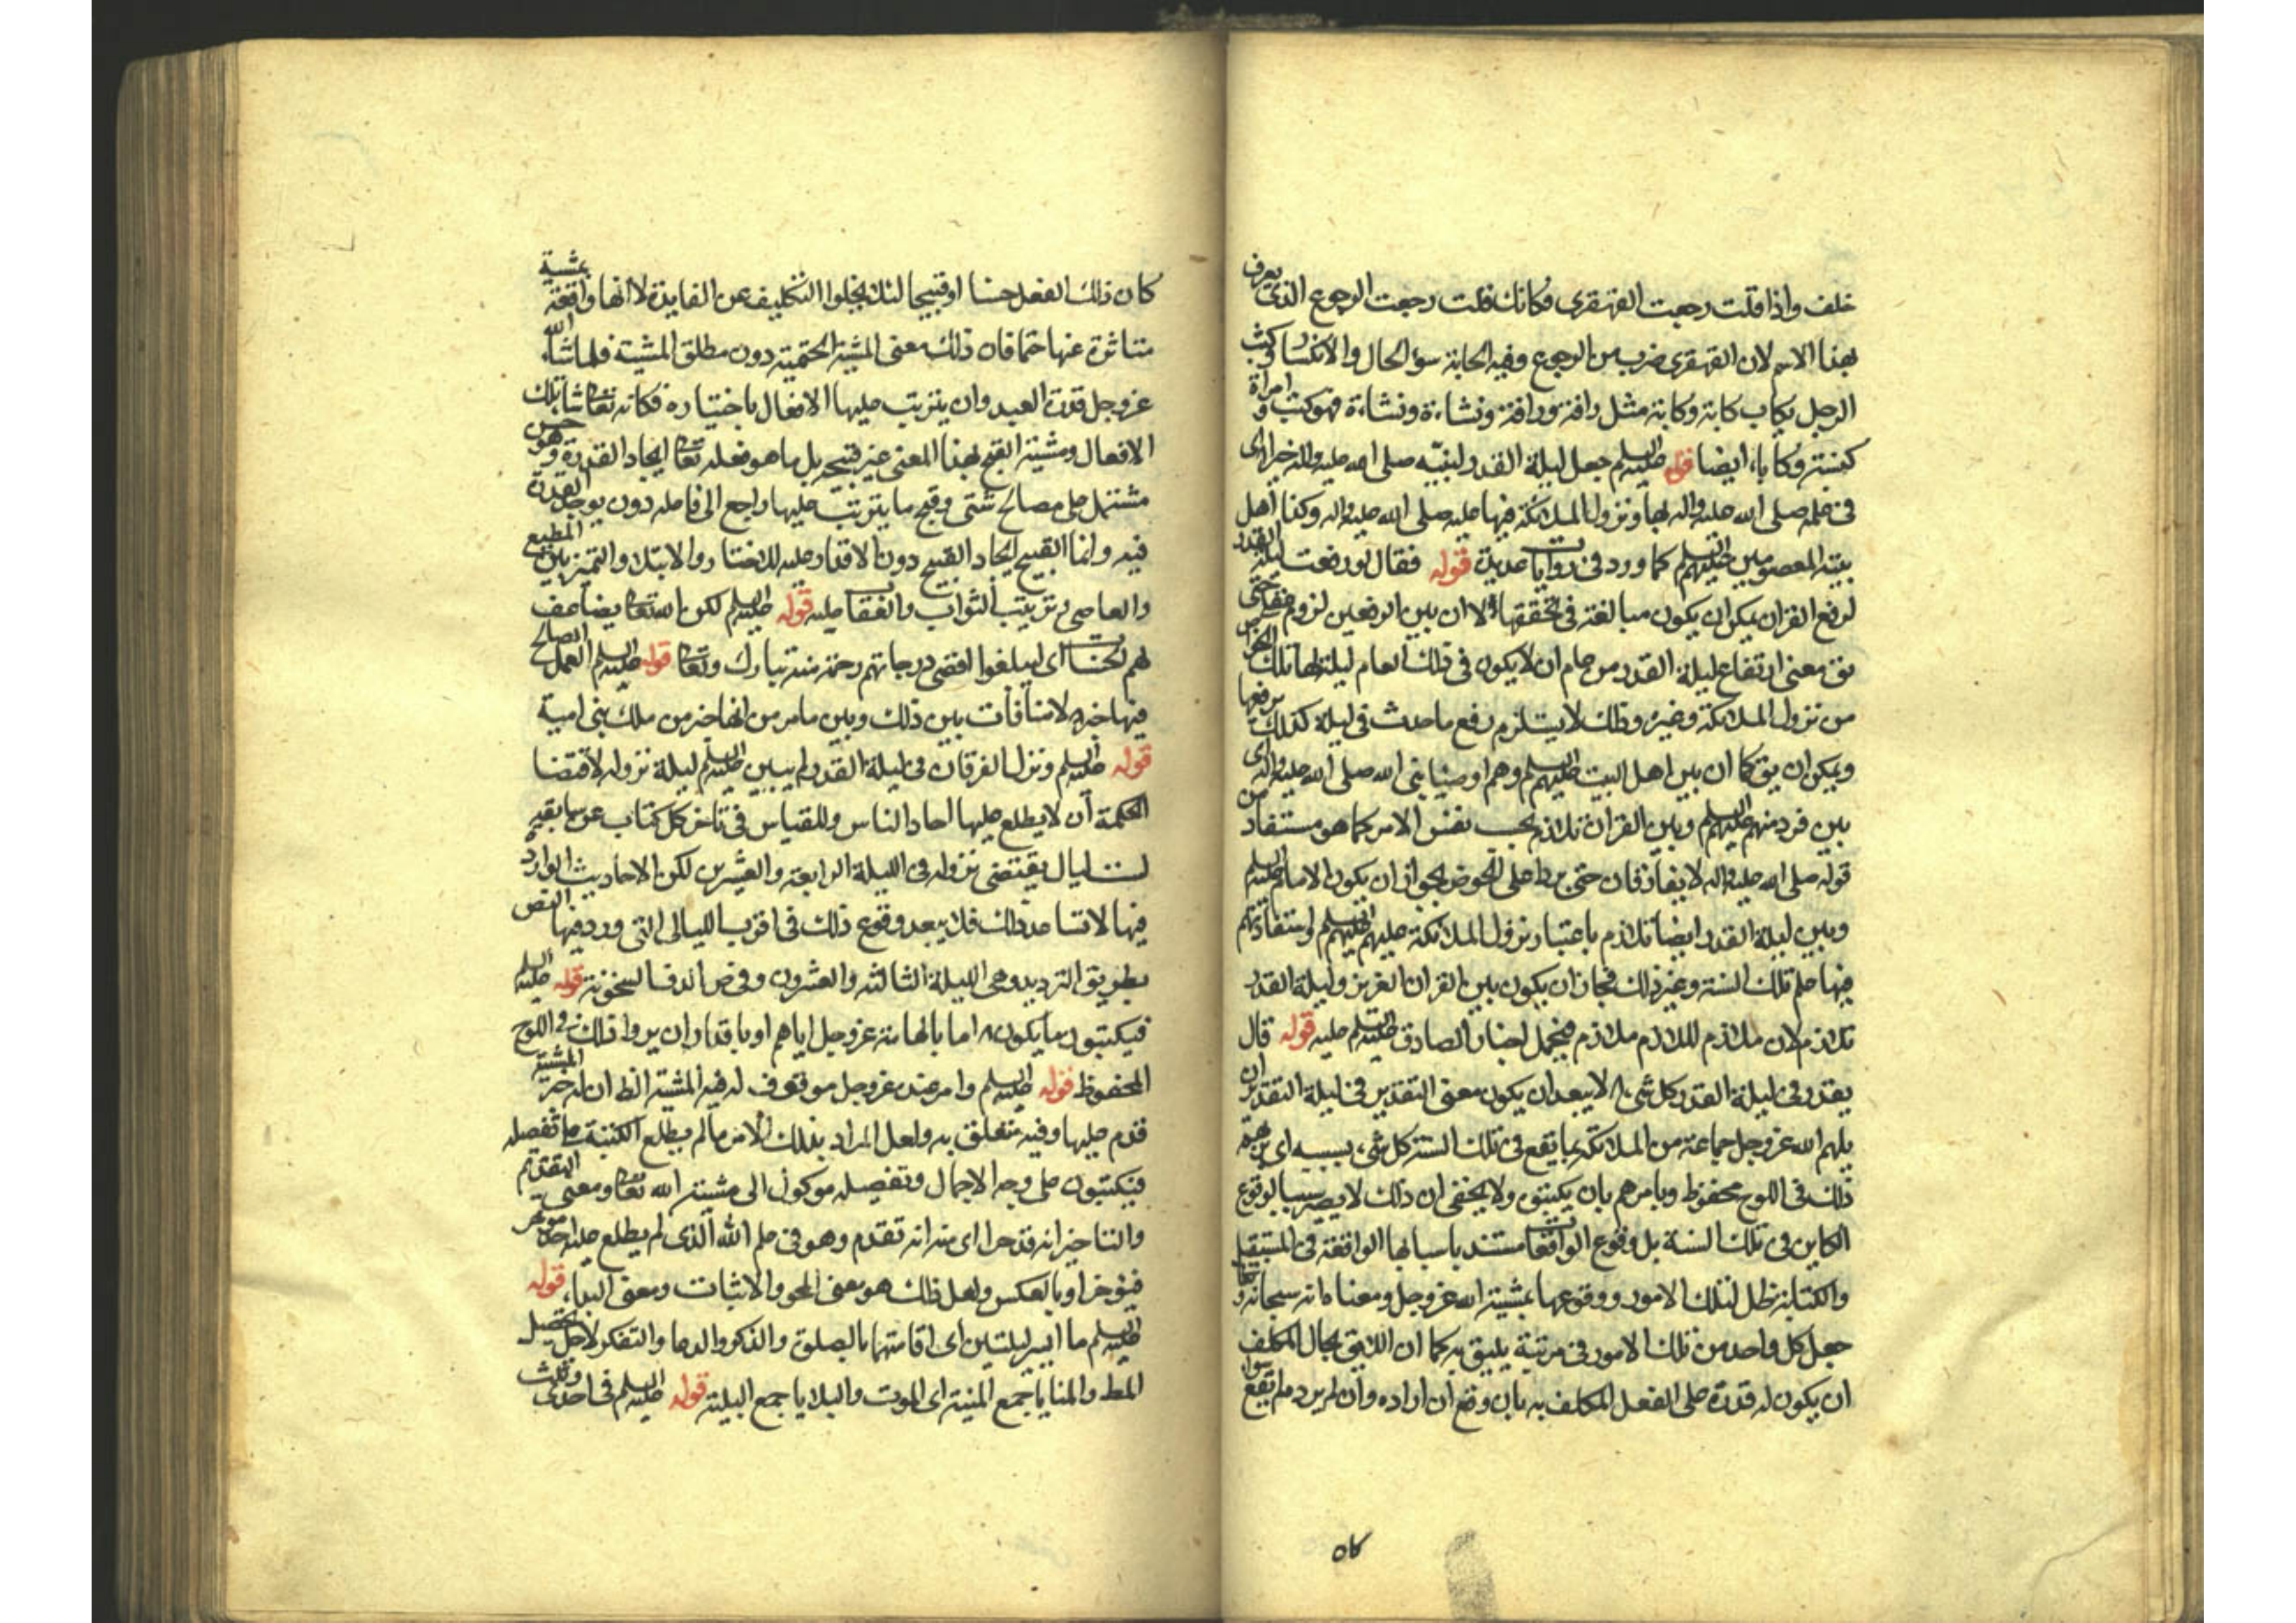 خلف واذا قلت رجعت القهقرى فكانك قلت رجعت الرجوع الذى يعرف
بهذا الاسم لان القهقرى ضرب من الرجوع وفيه الكابة سوء الحال والانكسار كئب
الرجل يكاب كابة وكابة مثل رافة ورافة ونشاءة ونشاءة فهو كئب وامراة
كئبة وكاباء ايضا قوله عليه السلم جعل ليلة القدر لنبيه صلى الله عليه واله خيرا اى
فى علمه صلى الله عليه واله بها ونزول الملائكة فيها عليه صلى الله عليه واله وكذا اهل
بيته المعصومين عليهم السلم كما ورد فى روايات عديدة قوله فقال لو رفعت ليلة القدر
لرفع القران يمكن ان يكون مبالغة فى تحققها لا ان بين الرفعين لزوم حتى
يق معنى ارتفاع ليلة القدر من عام ان لا يكون فى ذلك العام ليلة لها تلك
من نزول الملائكة وغيره وذلك لا يستلزم رفع ما حدث فى ليلة كذلك برفعها
ويمكن ان يق كما ان بين اهل البيت عليهم السلم وهم اوصيا نبى الله صلى الله عليه واله اى
بين فرد منهم عليهم السلم وبين القران تلازم بحسب نفس الامر كما هو مستفاد من
قوله صلى الله عليه واله لا يفارقان حتى يردا على الحوض لجواز ان يكون الامام عليه السلم
وبين ليلة القدر ايضا تلازم باعتبار نزول الملائكة عليهم عليهم السلم واستفادتهم
فيها علم تلك السنة وغير ذلك فجاز ان يكون بين القران العزيز وليلة القدر
تلازم لان ملازم الملازم ملازم فيحمل اخبار الصادق عليه السلم عليه قوله قال
يقدر فى ليلة القدر كل شىء لا يبعد ان يكون معنى التقدير فى ليلة التقدير ان
يلهم الله عز وجل جماعة من الملائكة بما يقع فى تلك السنة كل شىء بسببه اى
ذلك فى اللوح محفوظ ويامرهم بان يكتبوه ولا يخفى ان ذلك لا يصير سببا لوقوع
الكاين فى تلك السنة بل وقوع الواقعات مستند باسبابها الواقعة فى المستقبل
والكتابة ظل لتلك الامور ووقوعها بمشية الله عز وجل ومعناه انه سبحانه وتعا
جعل كل واحد من تلك الامور فى مرتبة يليق به كما ان اللايق بحال المكلف
ان يكون له قدرة على الفعل المكلف به بان وقع ان اراده وان لم يرد ما يقع سوا
كان ذلك الفعل حسنا او قبيحا لئلا يخلوا التكليف عن الفايدة لا انها واقعة بمشية
متاثرة عنها حتما فان ذلك معنى المشية الحتمية دون مطلق المشية فلما شاء الله
عز وجل قدرة العبد وان يترتب عليها الافعال باختياره فكانه تعا شا تلك
الافعال ومشية القبح بهذا المعنى غير قبيحه بل ما هو فعله تعا ايجاد القدرة وهو حسن
مشتمل على مصالح شتى وقبح ما يترتب عليها راجع الى فاعله دون يوجد القدرة
فيه وانما القبيح ايجاد القبيح دون الاقدار عليه للاختبار والابتلا والتميز بين المطيع
والعاصى وترتيب الثواب والعقاب عليه قوله عليه السلم لكن الله تعا يضاعف
لهم الحسنات اى ليبلغوا اقصى درجاتهم رحمة منه تبارك وتعا قوله عليه السلم العمل الصالح
فيها خير لا منافات بين ذلك وبين ما مر من انها خير من ملك بنى امية
قوله عليه السلم ونزل الفرقان فى ليلة القدر لم يبين عليه السلم ليلة نزوله لاقتضا
الحكمة ان لا يطلع عليها احاد الناس والقياس فى تاخر كل كتاب عن سابقه
لست ليال يقتضى نزوله فى الليلة الرابعة والعشرين لكن الاحاديث الواردة
فيها لا تساعد ذلك فلا يبعد وقوع ذلك فى اقرب الليالى التى ورد فيها النص
بطريق الترديد وهى الليلة الثالثة والعشرون قوله عليه السلم
فيكتبون ما يكون اما بالهامه عز وجل اياهم او باقدار ان يروا ذلك فى اللوح
المحفوظ قوله عليه السلم وامر عنده عز وجل موقوف له فيه المشية الظ ان له خبر المشية
قدم عليها وفيه متعلق به ولعل المراد بذلك الامر ما لم يطلع الكتبة على تفصيله
فيكتبون على وجه الاجمال وتفصيله موكول الى مشية الله تعا ومعنى التقديم
والتاخير انه قد جرا اى منه انه تقدم وهو فى علم الله الذى لم يطلع عليه احد موخر
فيؤخر او بالعكس ولعل ذلك هو معنى المحو والاثبات ومعنى البداء قوله
عليه السلم ما ايسر ليلتين اى اقامتهما بالصلوة والذكر والدعا والتفكر لاجل تحصيل
المط والمنايا جمع المنية اى الموت والبلايا جمع البلية قوله عليه السلم فى احدى وثلث